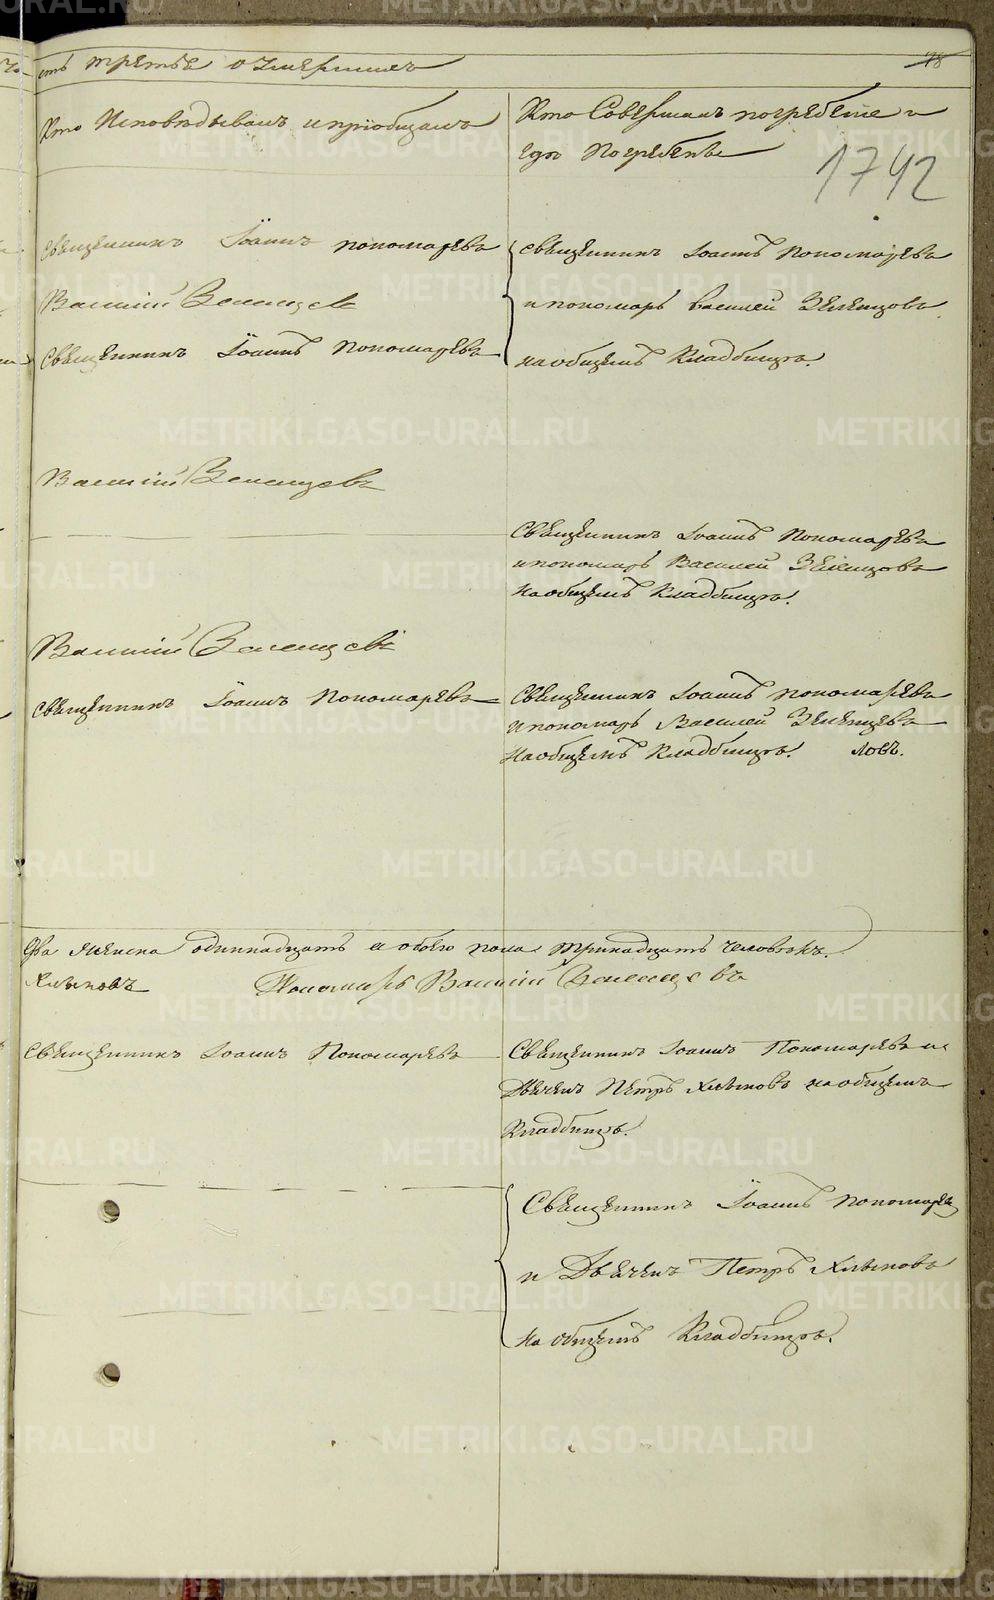 сть третья о умершихъ
78
Кто Исповѣдывалъ и пріобщалъ
Кто Совершалъ погребеніе и
гдѣ Погребенъ
1742
Священникъ Іоаннъ пономаревъ
Василій Зеленцовъ
Священникъ Іоаннъ пономаревъ
священникъ Іоаннъ Пономаревъ
и пономарь василей Зеленцовъ
на общемъ Кладбищѣ.
Василій Зеленцовъ
Священникъ Іоаннъ Пономаревъ
и пономарь Василей Зеленцовъ
на общемъ Кладбищѣ.
Василій Зеленцовъ
священникъ Іоаннъ Пономаревъ
Священникъ Іоаннъ пономаревъ
и пономарь Василей Зеленцовъ
на общемъ Кладбищѣ. ловъ.
два женска одиннадцать а обоего пола тринадцать человѣкъ.
Хлыновъ Пономарь Василій Зеленцовъ
Священникъ Іоаннъ Пономаревъ
Священникъ Іоаннъ Пономаревъ и
Дьячекъ Петръ Хлыновъ на общемъ
Кладбищѣ.
Священникъ Іоаннъ Пономаревъ
и Дьячекъ Петръ Хлыновъ
на общемъ Кладбищѣ.
METRIKI.GASO-URAL.RU